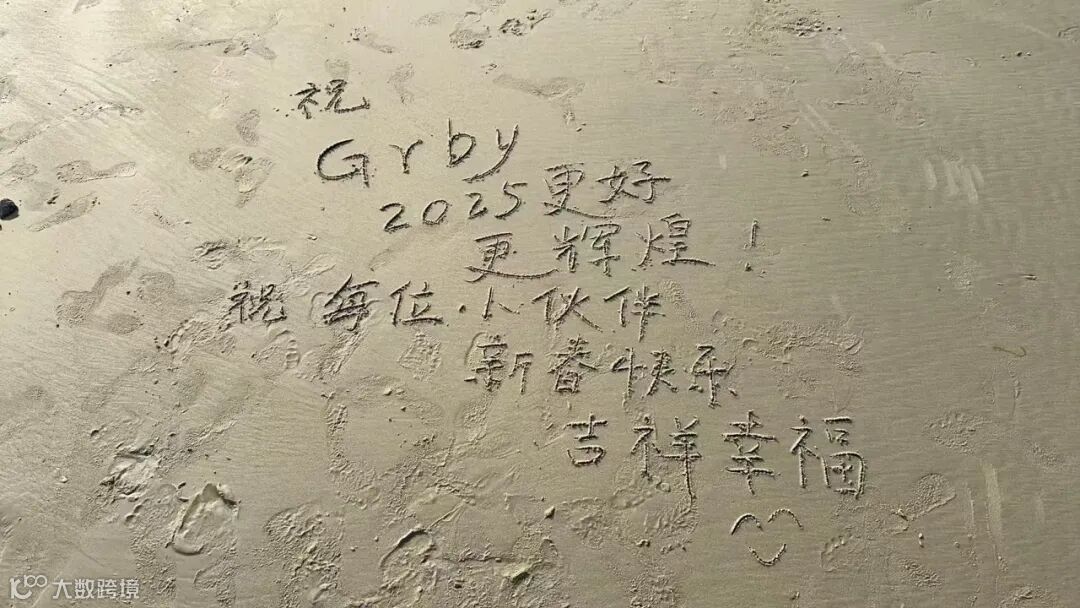 祝
Grby
2025更好
更辉煌!
祝每位小伙伴
新春快乐
吉祥幸福
大数跨境